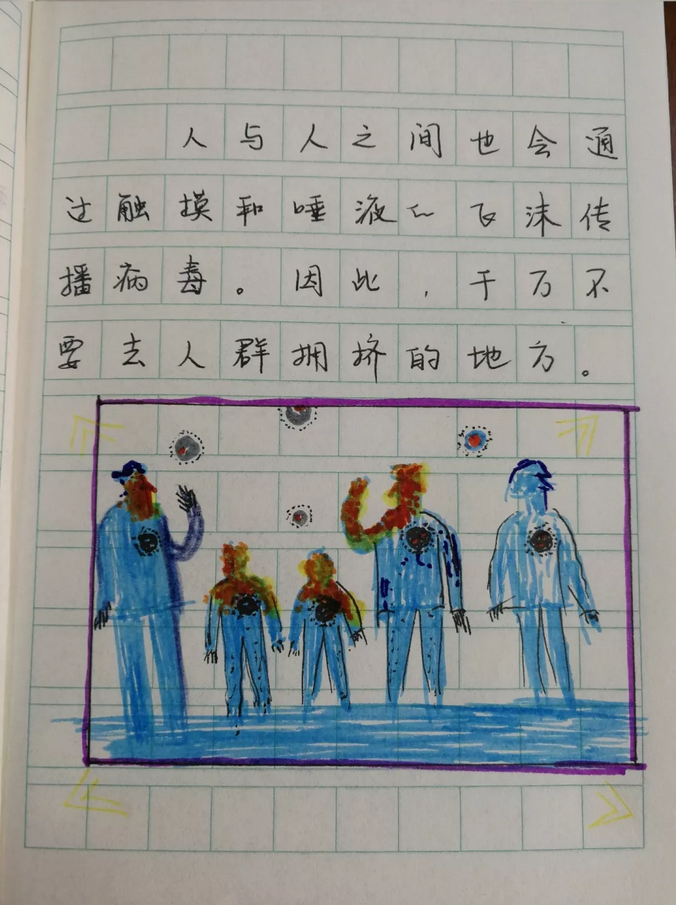 人与人之间也会通
过触摸和唾液飞沫传
播病毒。因此，千万不
要去人群拥挤的地方。